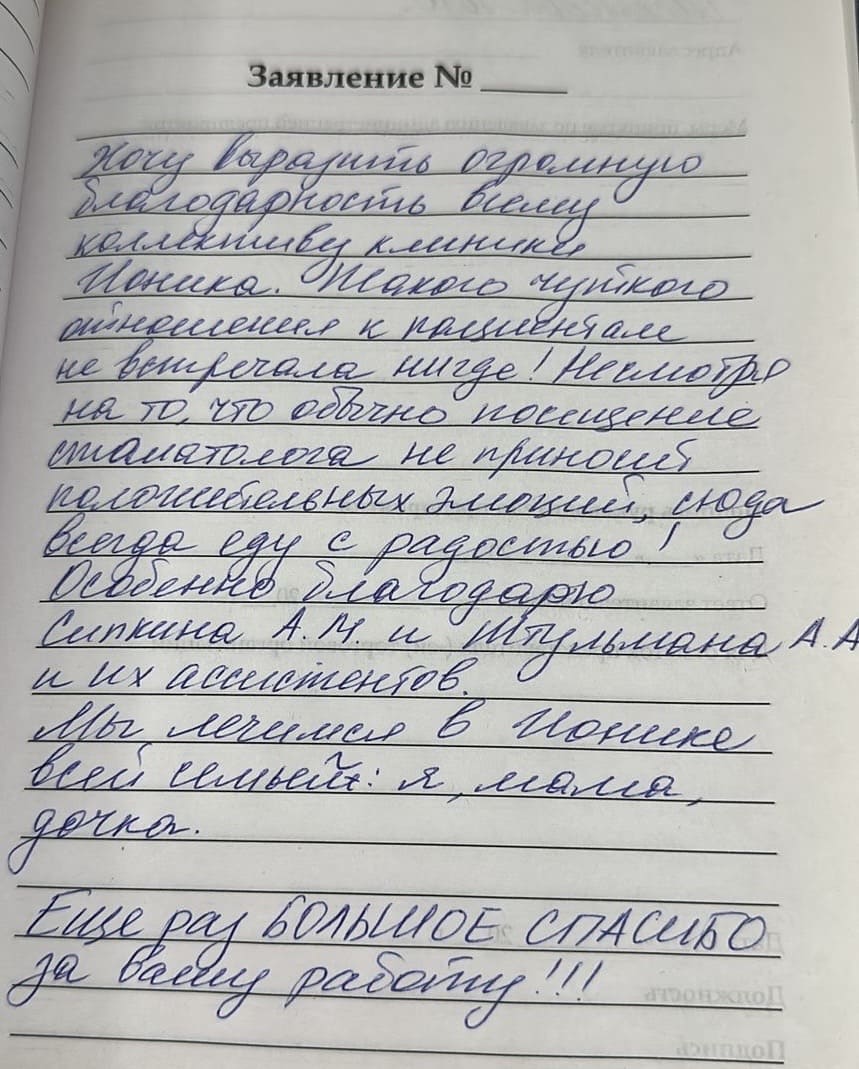 Заявление № ______
Хочу выразить огромную
благодарность всему
коллективу клиники
Ионика. Такого чуткого
отношения к пациентам
не встречала нигде! Несмотря
на то, что обычно посещение
стаматолога не приносит
положительных эмоций, сюда
всегда еду с радостью!
Особенно благодарю
Сипкина А.М. и Штульмана А.А
и их ассистентов.
Мы лечимся в Ионике
всей семьей: я, мама,
дочка.
Еще раз БОЛЬШОЕ СПАСИБО
за вашу работу!!!
Должность
Подпись